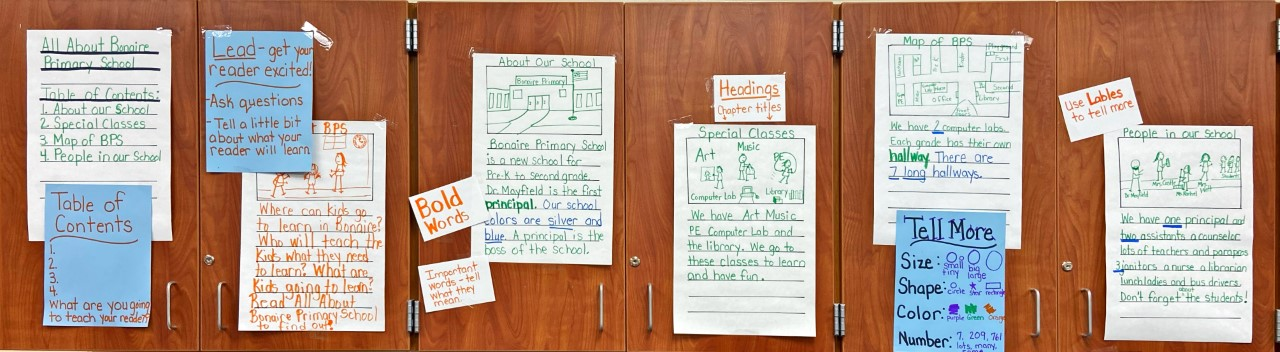 All About Bonaire
Primary School
Table of Contents:
1. About our School
2. Special Classes
3. Map of BPS
4. People in our School
Table of
Contents
1.
2.
3.
4.
What are you going
to teach your reader?
Lead - get your
reader excited!
-Ask questions
-Tell a little bit
about what your
reader will learn
t BPS
Where can kids go
to learn in Bonaire?
Who will teach the
Kids what they need
to learn? What are
Kids going to learn?
Read All About
Bonaire Primary School
to find out!
Bold
Words
Important
words - tell
what they
mean.
About Our School
Bonaire Primary
Bonaire Primary School
is a new school for
Pre-K to second grade.
Dr. Mayfield is the first
principal. Our school
colors are silver and
blue. A principal is the
boss of the School.
Headings
Chapter titles
Special Classes
Art
Music
PE
Computer Lab
Library
We have Art Music
PE Computer Lab and
the library. We go to
these classes to learn
and have fun.
Map of BPS
Playground
First
Second
Office
Library
We have 2 computer labs.
Each grade has their own
hallway. There are
7 long hallways.
Tell More
Size: small big
tiny large
Shape: circle star rectangle
Color: purple Green Orange
Number: 7, 209, 761
lots, many,
some
Use Lables
to tell more
People in our School
Dr. Mayfield
We have one principal and
two assistants a counselor
lots of teachers and parapros
3 janitors a nurse a librarian
lunch ladies and bus drivers.
Don't forget about the students!